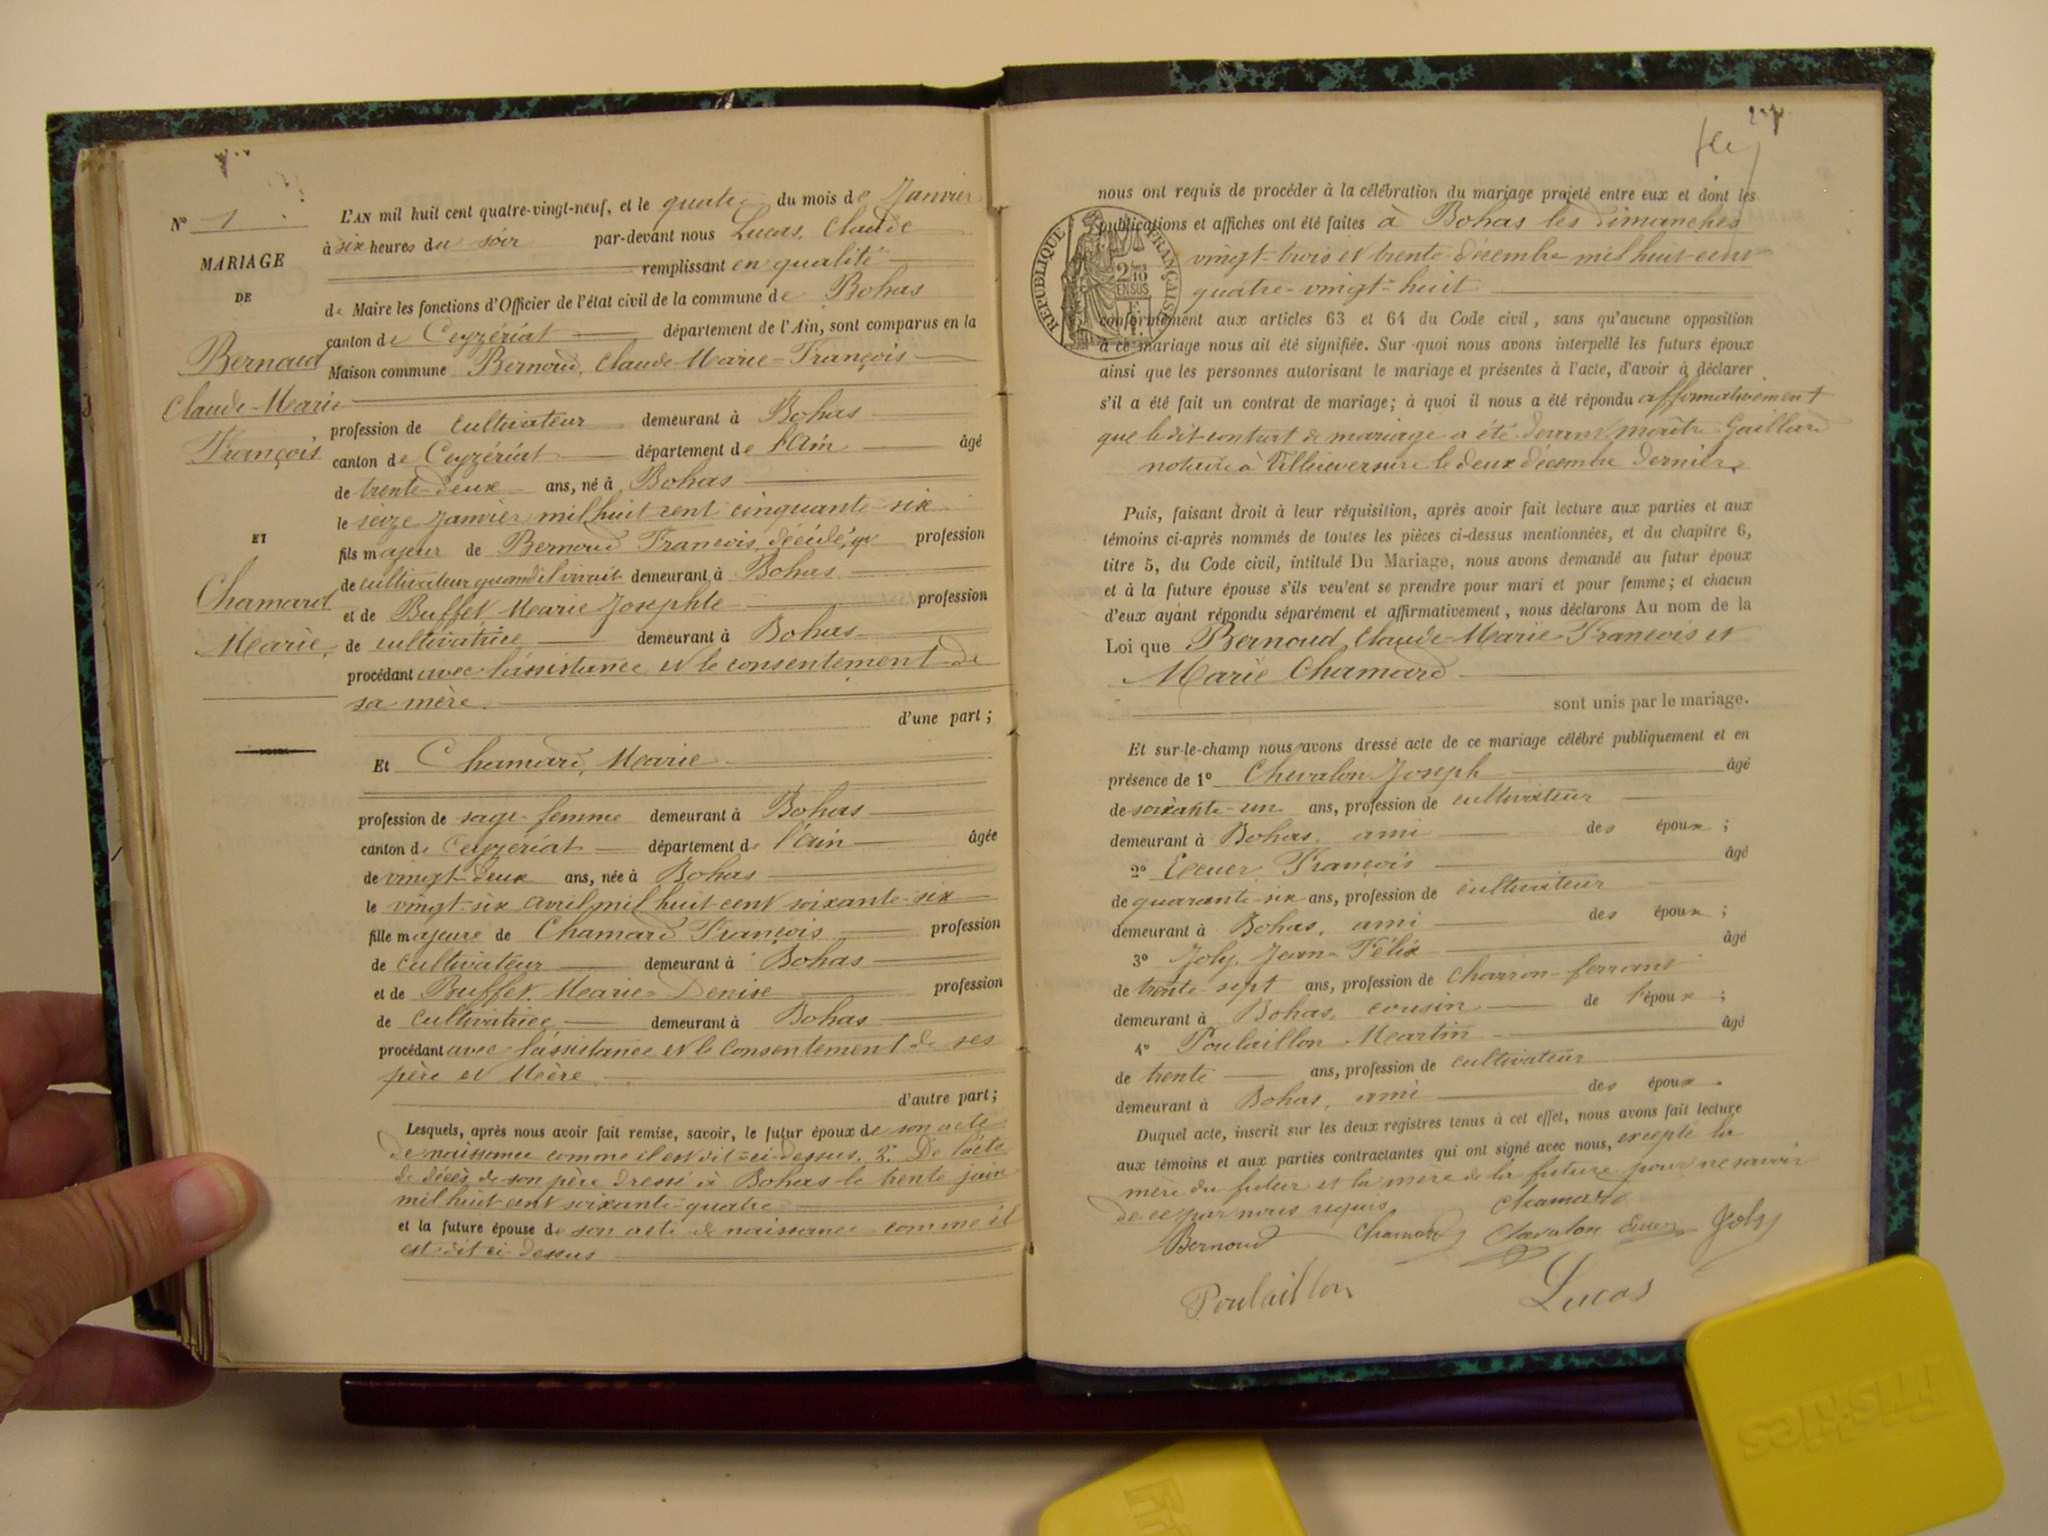 N° 1
MARIAGE
DE
Bernoud
Claude-Marie
François
ET
Chamard
Marie
L'AN mil huit cent quatre-vingt-neuf, et le quatre du mois de Janvier
à six heures du soir par-devant nous Lucas, Claude
remplissant en qualité
de Maire les fonctions d'Officier de l'état civil de la commune de Bohas
canton de Ceyzériat département de l'Ain, sont comparus en la
Maison commune Bernoud, Claude-Marie-François
profession de cultivateur demeurant à Bohas
canton de Ceyzériat département de l'Ain âgé
de trente-deux ans, né à Bohas
le seize Janvier mil huit cent cinquante-six
fils majeur de Bernoud François décédé, profession
de cultivateur quand il vivait demeurant à Bohas
et de Buffet Marie Josephte profession
de cultivatrice demeurant à Bohas
procédant avec l'assistance et le consentement de
sa mère.
d'une part ;
Et Chamard, Marie
profession de sage-femme demeurant à Bohas
canton de Ceyzériat département de l'Ain âgée
de vingt-deux ans, née à Bohas
le vingt-six avril mil huit cent soixante-six
fille majeure de Chamard François profession
de cultivateur demeurant à Bohas
et de Buffet Marie-Denise profession
de cultivatrice demeurant à Bohas
procédant avec l'assistance et le consentement de ses
père et Mère
d'autre part ;
Lesquels, après nous avoir fait remise, savoir, le futur époux de son acte
de naissance comme il est dit ci-dessus. 2° De l'acte
de décès de son père dressé à Bohas le trente juin
mil huit cent soixante-quatre
et la future épouse de son acte de naissance comme il
est dit ci-dessus
nous ont requis de procéder à la célébration du mariage projeté entre eux et dont les
publications et affiches ont été faites à Bohas les dimanches
vingt-trois et trente décembre mil huit cent
quatre-vingt-huit
RÉPUBLIQUE FRANÇAISE
2/10
EN SUS
conformément aux articles 63 et 64 du Code civil, sans qu'aucune opposition
à ce mariage nous ait été signifiée. Sur quoi nous avons interpellé les futurs époux
ainsi que les personnes autorisant le mariage et présentes à l'acte, d'avoir à déclarer
s'il a été fait un contrat de mariage; à quoi il nous a été répondu affirmativement
que le dit contrat de mariage a été devant maître Gaillard
notaire à Villereversure le deux décembre dernier
Puis, faisant droit à leur réquisition, après avoir fait lecture aux parties et aux
témoins ci-après nommés de toutes les pièces ci-dessus mentionnées, et du chapitre 6,
titre 5, du Code civil, intitulé Du Mariage, nous avons demandé au futur époux
et à la future épouse s'ils veulent se prendre pour mari et pour femme ; et chacun
d'eux ayant répondu séparément et affirmativement, nous déclarons Au nom de la
Loi que Bernoud, Claude-Marie-François et
Marie Chamard
sont unis par le mariage.
Et sur-le-champ nous avons dressé acte de ce mariage célébré publiquement et en
présence de 1° Chevalon Joseph âgé
de soixante-un ans, profession de cultivateur
demeurant à Bohas, ami des époux ;
2° Ecuer, François âgé
de quarante-six ans, profession de cultivateur
demeurant à Bohas, ami des époux ;
3° Joly, Jean-Félix âgé
de trente-sept ans, profession de charron-ferrant
demeurant à Bohas, cousin de l'époux ;
4° Poulaillon Martin âgé
de trente ans, profession de cultivateur
demeurant à Bohas, ami des époux.
Duquel acte, inscrit sur les deux registres tenus à cet effet, nous avons fait lecture
aux témoins et aux parties contractantes qui ont signé avec nous, excepté la
mère du futur et la mère de la future pour ne savoir
de ce par nous requis
Chamard
Bernoud Chamard Chavalon Ecuer Joly
Poulaillon Lucas
Friskies